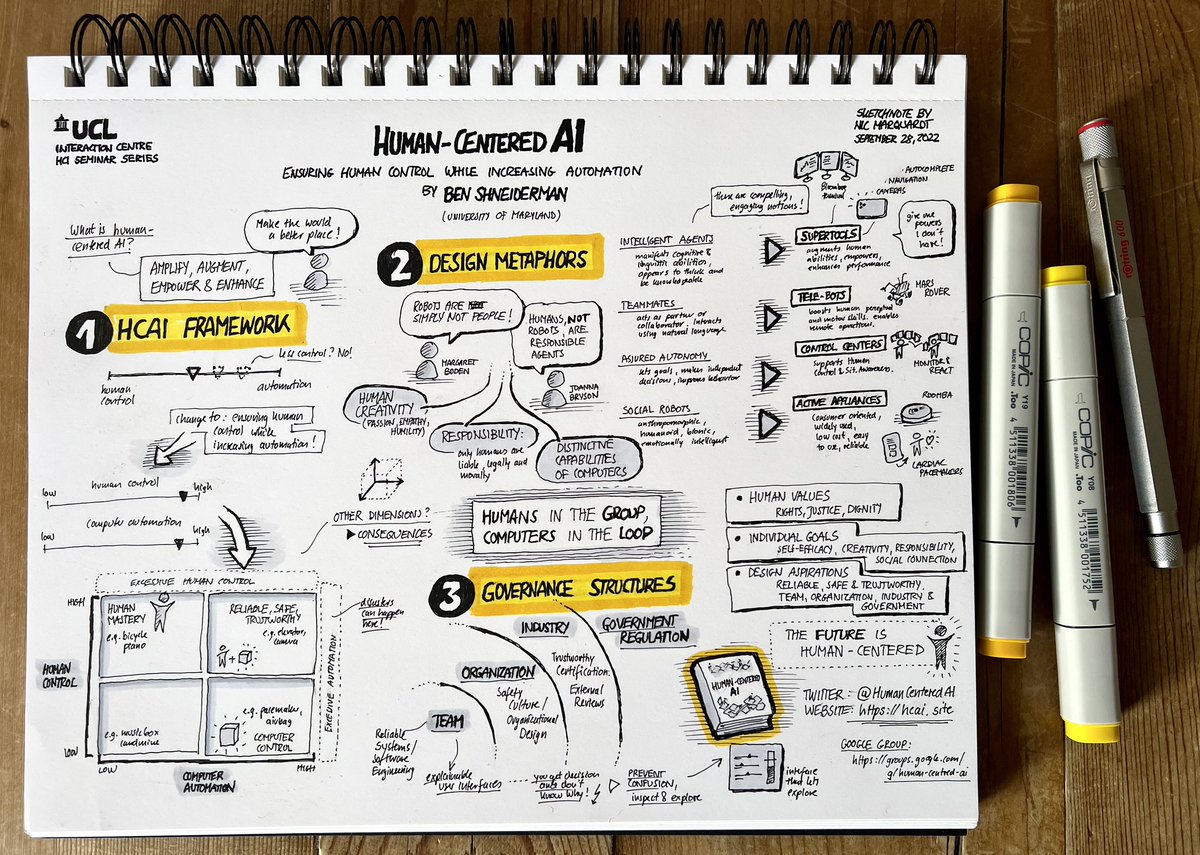 UCL
INTERACTION CENTRE
HCI SEMINAR SERIES
HUMAN-CENTERED AI
ENSURING HUMAN CONTROL WHILE INCREASING AUTOMATION
BY BEN SHNEIDERMAN
(UNIVERSITY OF MARYLAND)
SKETCHNOTE BY
NIC MARQUARDT
SEPTEMBER 28, 2022
What is human-
centered AI?
Make the would
a better place!
AMPLIFY, AUGMENT,
EMPOWER & ENHANCE
1 HCAI FRAMEWORK
Less control? No!
human
control
automation
change to: ensuring human
control while
increasing automation!
human control
low
high
computer automation
low
high
EXCESSIVE HUMAN CONTROL
HIGH
HUMAN
MASTERY
e.g. bicycle
piano
RELIABLE, SAFE,
TRUSTWORTHY
e.g. elevator,
camera
HUMAN
CONTROL
e.g. music box
landmine
e.g. pacemaker,
airbag
COMPUTER
CONTROL
LOW
LOW
HIGH
COMPUTER
AUTOMATION
EXCESSIVE AUTOMATION
disasters
can happen
here!
OTHER DIMENSIONS?
CONSEQUENCES
2 DESIGN METAPHORS
ROBOTS ARE
SIMPLY NOT PEOPLE!
MARGARET
BODEN
HUMANS, NOT
ROBOTS, ARE
RESPONSIBLE
AGENTS
JOANNA
BRYSON
HUMAN
CREATIVITY
(PASSION, EMPATHY,
HUMILITY)
RESPONSIBILITY:
only humans are
liable, legally and
morally
DISTINCTIVE
CAPABILITIES
OF COMPUTERS
these are compelling,
engaging notions!
INTELLIGENT AGENTS
manifests cognitive &
linguistic abilities,
appears to think and
be knowledgeable
TEAMMATES
acts as partner or
collaborator: interacts
using natural language
ASSURED AUTONOMY
sets goals, makes independent
decisions, improves behavior
SOCIAL ROBOTS
anthropomorphic,
humanoid, bionic,
emotionally intelligent
Bloomberg
terminal
AUTOCOMPLETE
NAVIGATION
CAMERAS
SUPERTOOLS
augments human
abilities, empowers,
enhances performance
give me
powers
I don't
have!
TELE-BOTS
boosts human perceptual
and motor skills, enables
remote operations.
MARS
ROVER
CONTROL CENTERS
Supports Human
Control & Sit. Awareness.
MONITOR &
REACT
ACTIVE APPLIANCES
Consumer oriented,
widely used,
low cost, easy
to use, reliable
ROOMBA
CARDIAC
PACEMAKERS
HUMANS IN THE GROUP,
COMPUTERS IN THE LOOP
• HUMAN VALUES
RIGHTS, JUSTICE, DIGNITY
• INDIVIDUAL GOALS
SELF-EFFICACY, CREATIVITY, RESPONSIBILITY,
SOCIAL CONNECTION
• DESIGN ASPIRATIONS
RELIABLE, SAFE & TRUSTWORTHY,
TEAM, ORGANIZATION, INDUSTRY &
GOVERNMENT
3 GOVERNANCE STRUCTURES
GOVERNMENT
REGULATION
INDUSTRY
Trustworthy
Certification:
External
Reviews
ORGANIZATION
Safety
Culture/
Organizational
Design
TEAM
Reliable
Systems/
Software
Engineering
explainable
user interfaces
you get decision
and don't
know why!
PREVENT
CONFUSION,
inspect & explore
HUMAN-CENTERED
AI
interface
that lets
explore
THE FUTURE IS
HUMAN-CENTERED
TWITTER: @HumanCenteredAI
WEBSITE: https://hcai.site
GOOGLE GROUP:
https://groups.google.com/
g/human-centred-ai
COPIC
MADE IN JAPAN
.Too
Y19
4 511338 001806
COPIC
MADE IN JAPAN
.Too
Y08
4 511338 001752
rotring 600